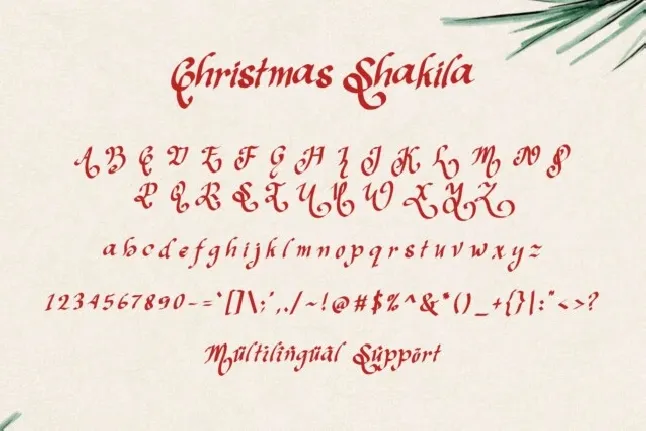 Christmas Shakila
A B C D E F G H I J K L M N O
P Q R S T U V W X Y Z
a b c d e f g h i j k l m n o p q r s t u v w x y z
1234567890-=`[]\;',./~!@#$%^&*()_+{}|:"<>?
Mültilïngüäl Süppört